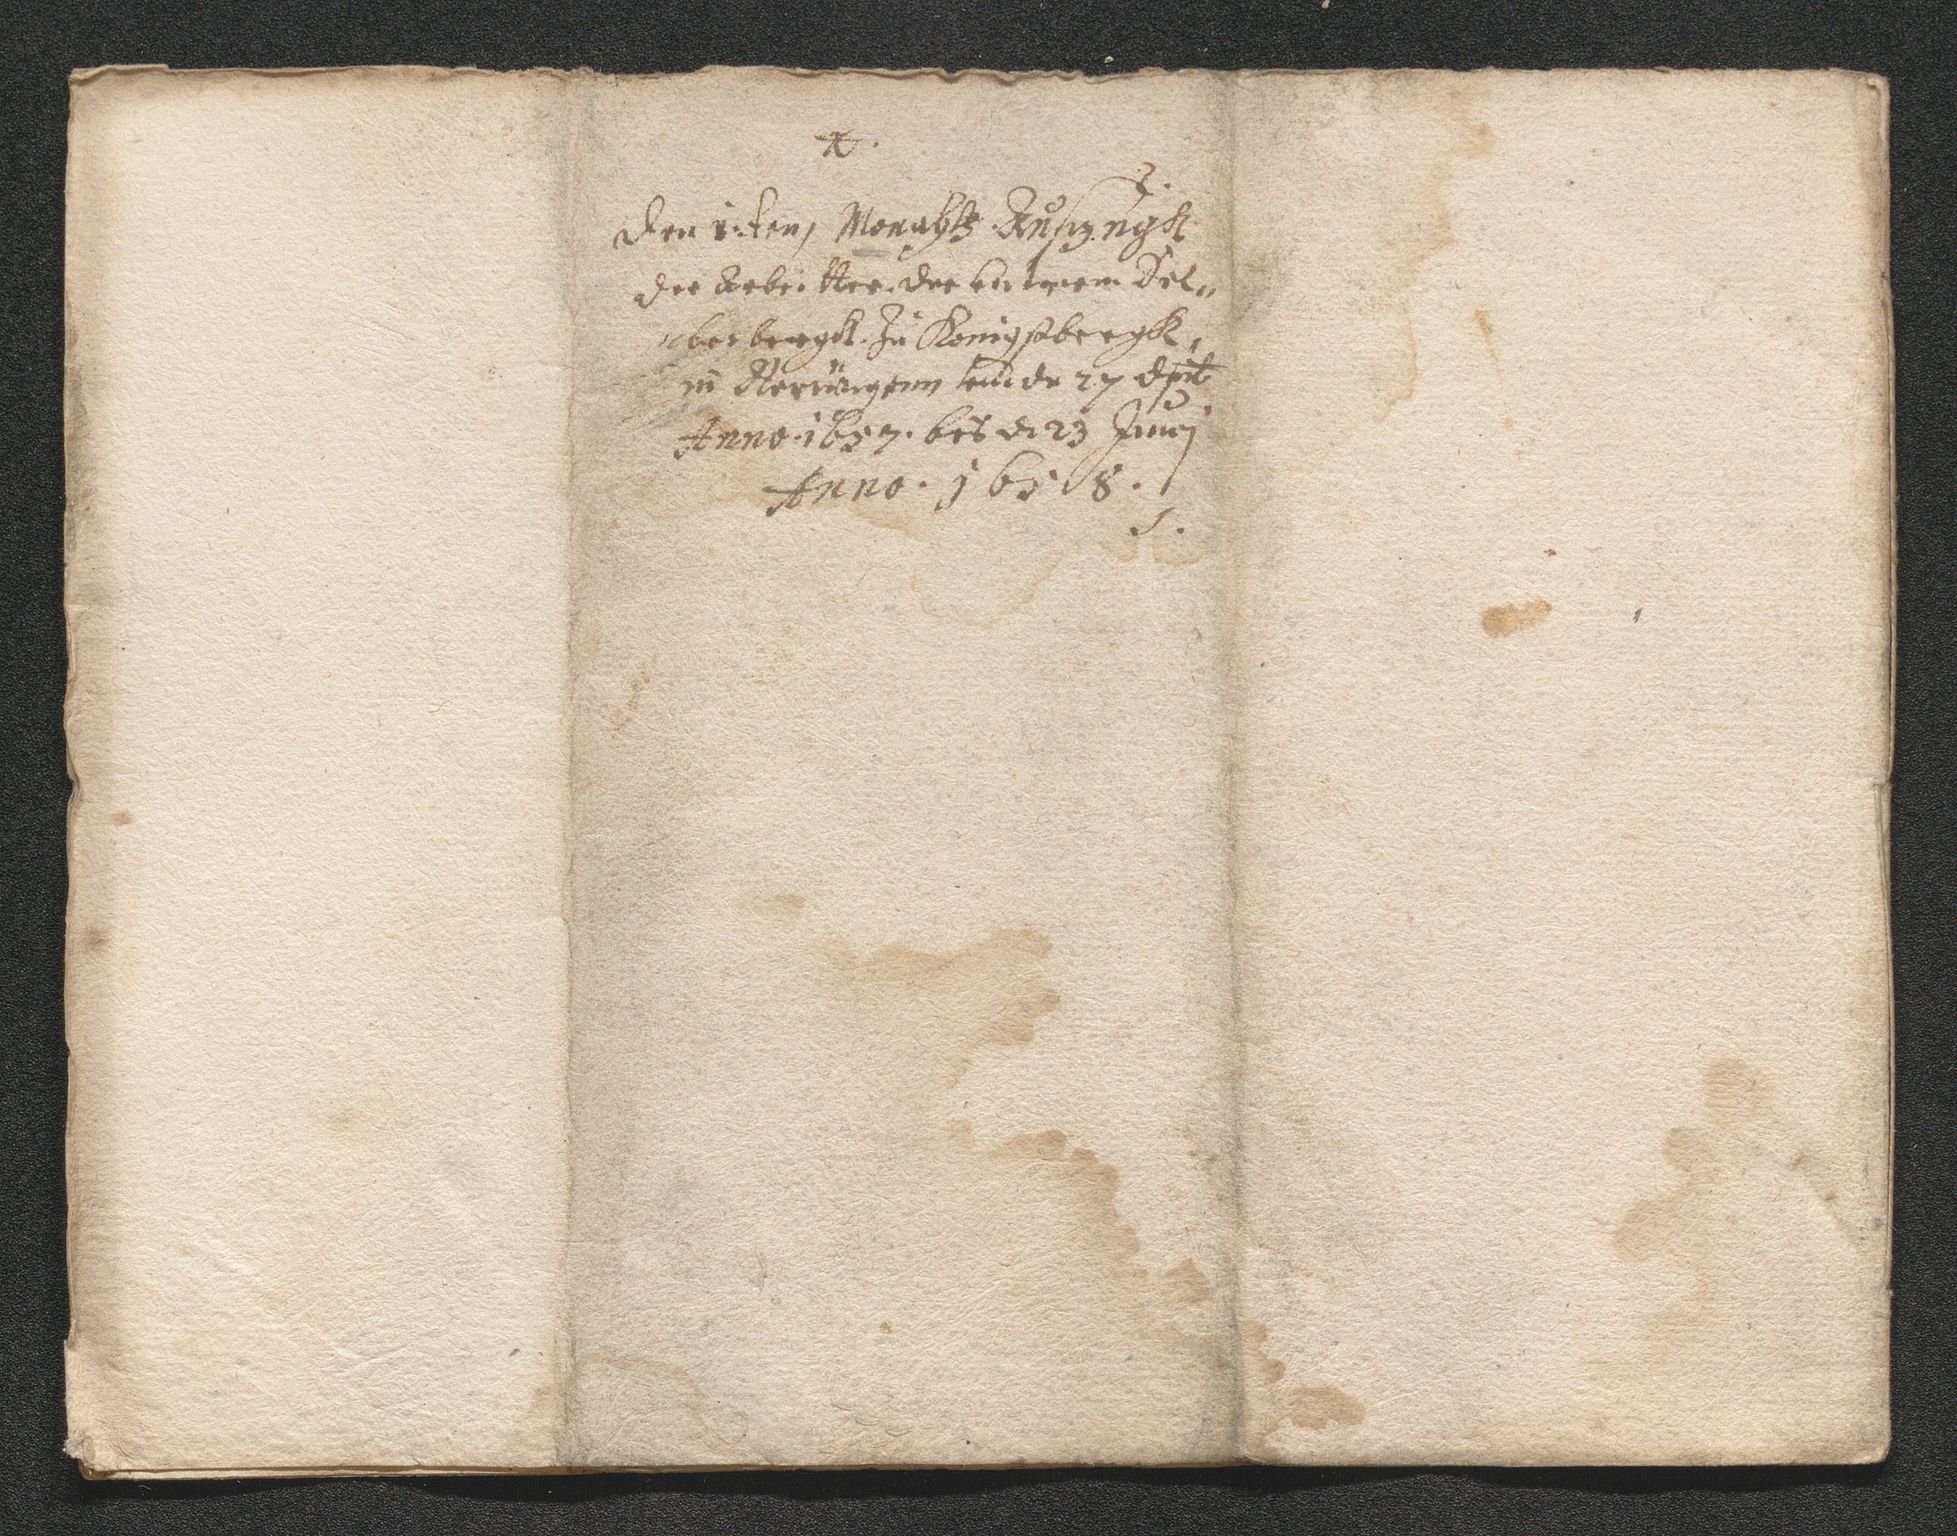 A.
Den 1ten Monahtz Auszugk
der Arbeitter der unterm Sil„
„berbergk Zu Konigsbergk„
in Norwegenn von de 27 Aprit
Anno 1657. bis d 23 Junij
Anno. 1658.